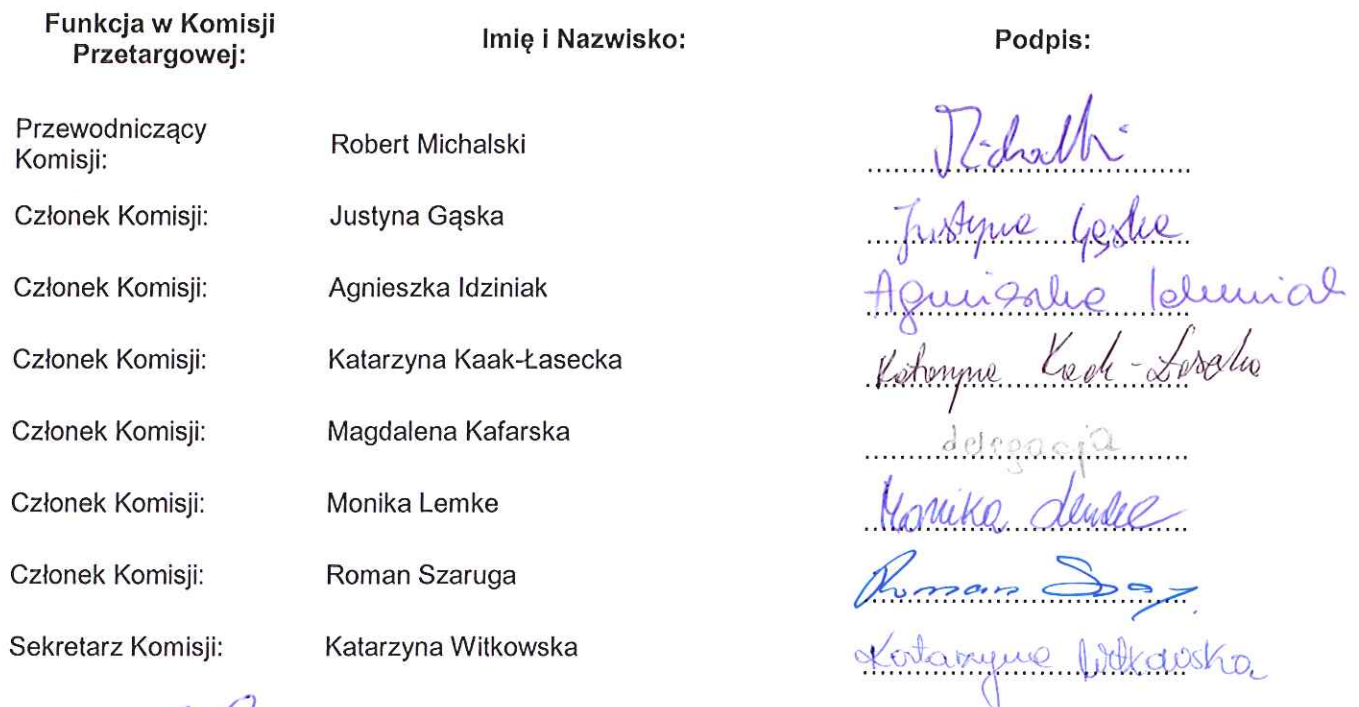 Funkcja w Komisji Przetargowej: Imię i Nazwisko: Podpis:
Przewodniczący Komisji: Robert Michalski Michalski
Członek Komisji: Justyna Gąska Justyna Gąska
Członek Komisji: Agnieszka Idziniak Agnieszka Idziniak
Członek Komisji: Katarzyna Kaak-Łasecka Katarzyna Kaak-Łasecka
Członek Komisji: Magdalena Kafarska delegacja
Członek Komisji: Monika Lemke Monika Lemke
Członek Komisji: Roman Szaruga Roman
Sekretarz Komisji: Katarzyna Witkowska Katarzyna Witkowska